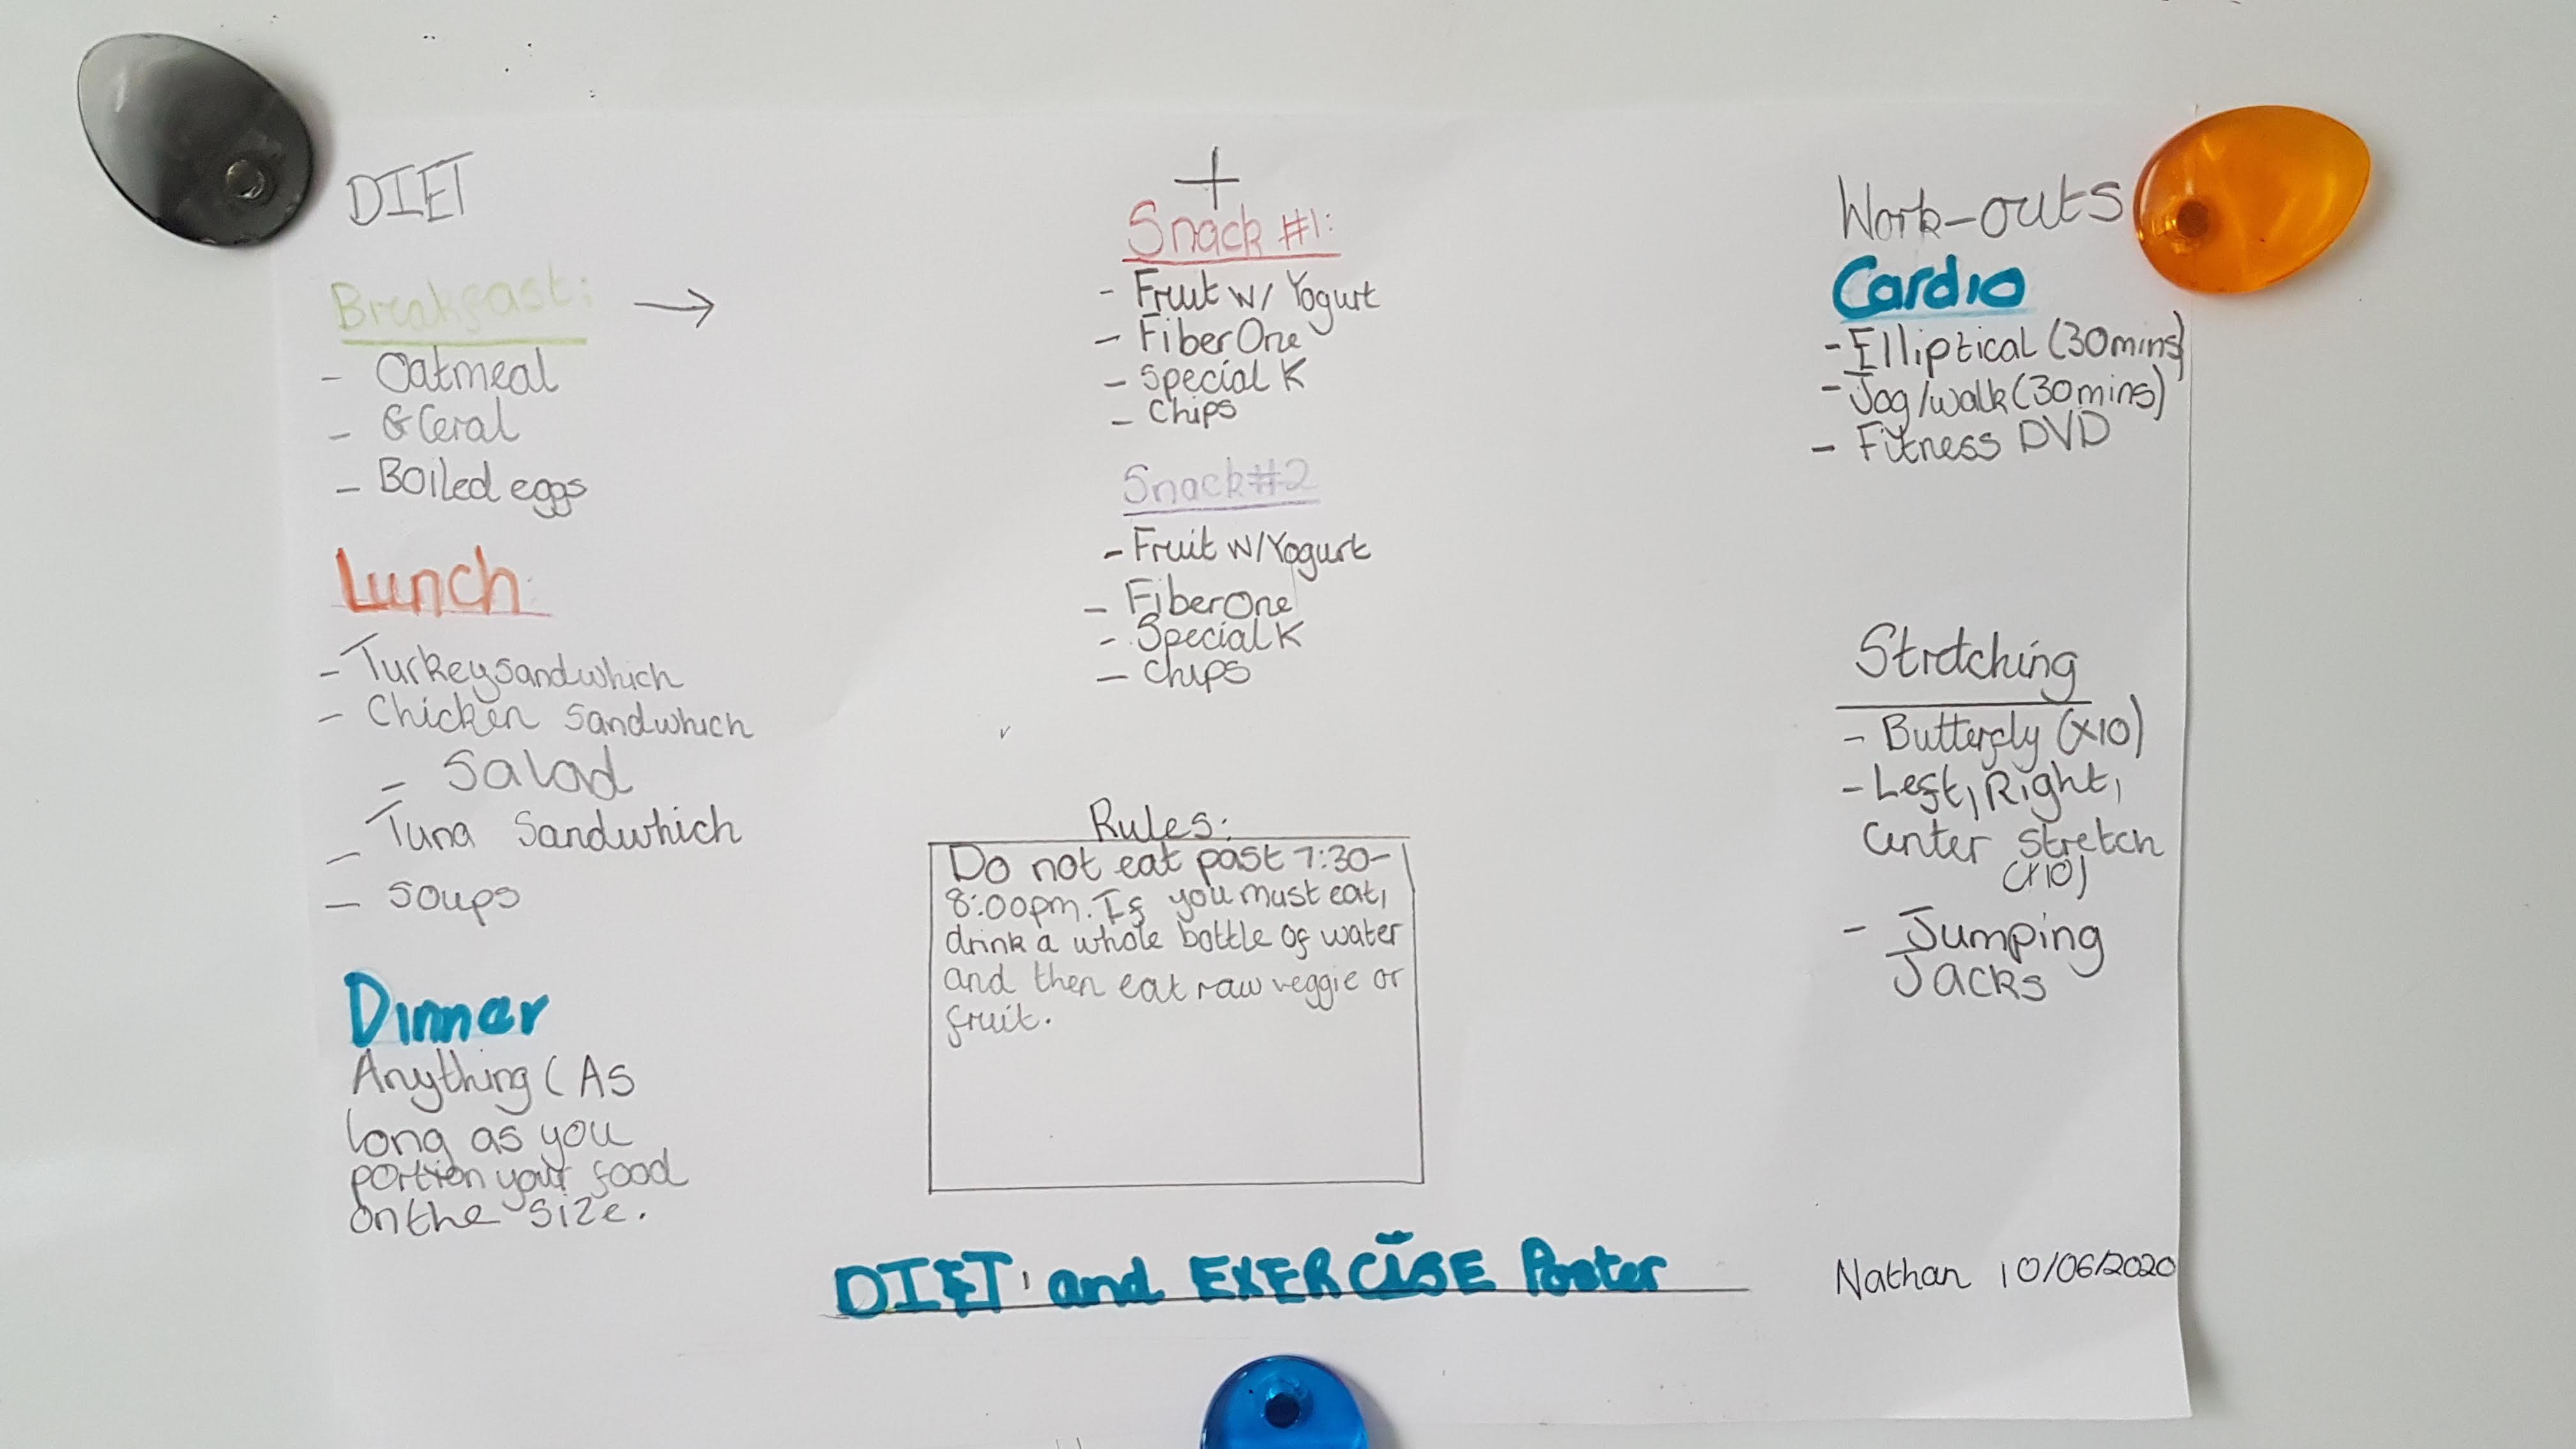 DIET
Breakfast:
- Oatmeal
- & Ceral
- Boiled eggs
Lunch
- Turkey sandwhich
- Chicken sandwhich
- Salad
- Tuna sandwhich
- soups
Dinner
Anything (As
long as you
portion your food
on the size.
+
Snack #1:
- Fruit w/ Yogurt
- Fiber One
- Special K
- Chips
Snack #2
- Fruit w/ Yogurt
- Fiber One
- Special K
- Chips
Rules:
Do not eat past 7:30-
8:00pm. If you must eat,
drink a whole bottle of water
and then eat raw veggie or
fruit.
Work-outs
Cardio
- Elliptical (30mins)
- Jog/walk (30mins)
- Fitness DVD
Stretching
- Butterfly (x10)
- Left, Right,
Center stretch
(x10)
- Jumping
Jacks
DIET and EXERCISE Poster
Nathan 10/06/2020